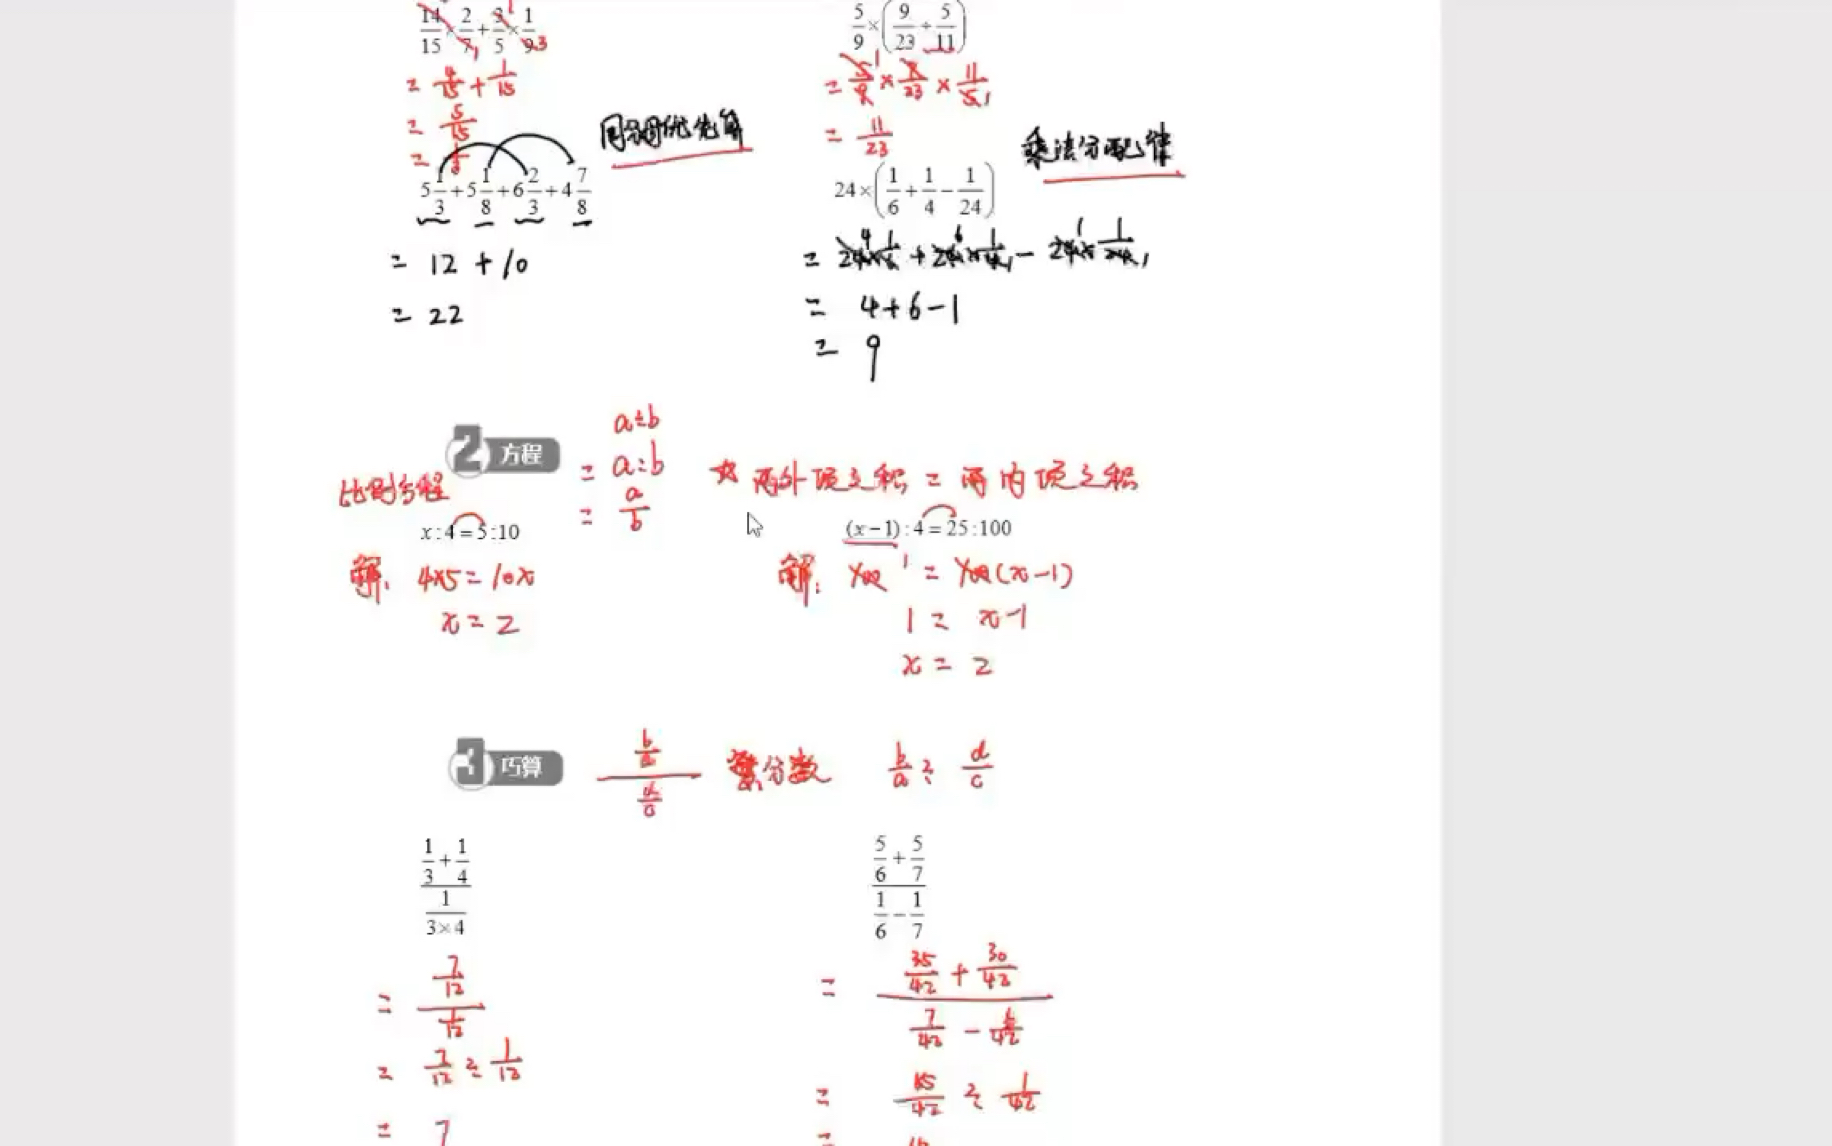 14/15 × 2/7 + 3/5 × 1/9
= 4/15 + 1/15
= 5/15
= 1/3
5/9 × (9/23 ÷ 5/11)
= 5/9 × 9/23 × 11/5
= 11/23
同分母优先算
5 1/3 + 5 1/8 + 6 2/3 + 4 7/8
= 12 + 10
= 22
乘法分配律
24 × (1/6 + 1/4 − 1/24)
= 24×1/6 + 24×1/4 − 24×1/24
= 4+6−1
= 9
2 方程
a÷b
= a:b
= a/b
☆ 两外项之积 = 两内项之积
比例方程
x:4=5:10
解: 4×5=10x
x=2
(x−1):4=25:100
解: 100 = 100(x−1)
1 = x−1
x = 2
3 巧算
b/a / d/c 繁分数 b/a ÷ d/c
(1/3 + 1/4) / (1/(3×4))
= (7/12) / (1/12)
= 7/12 ÷ 1/12
= 7
(5/6 + 5/7) / (1/6 − 1/7)
= (35/42 + 30/42) / (7/42 − 6/42)
= 65/42 ÷ 1/42
=